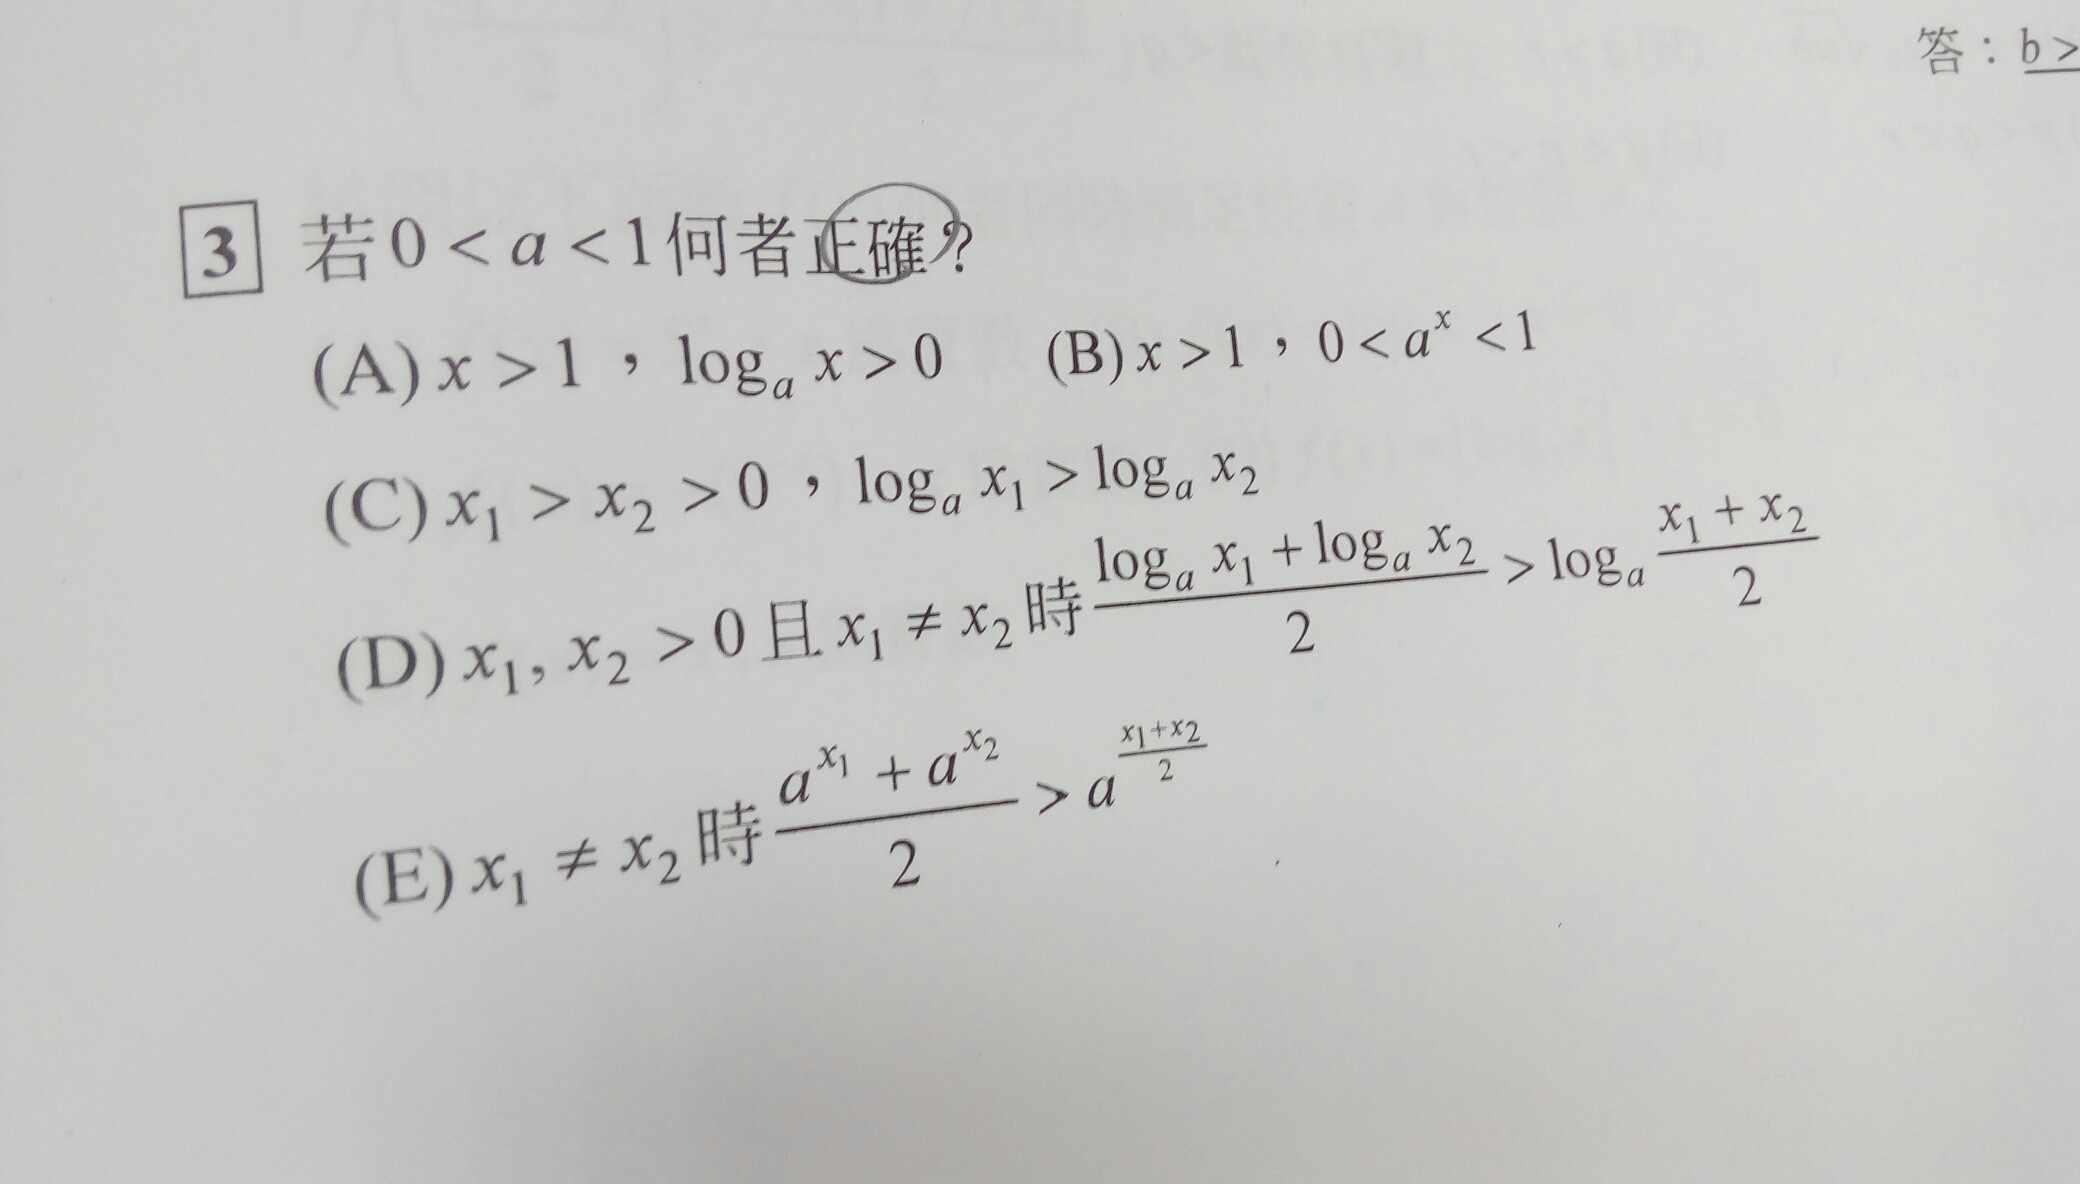 答：b >
3 若 0 < a < 1 何者正確？
(A) x > 1，logₐ x > 0 (B) x > 1，0 < aˣ < 1
(C) x₁ > x₂ > 0，logₐ x₁ > logₐ x₂
(D) x₁, x₂ > 0 且 x₁ ≠ x₂ 時 (logₐ x₁ + logₐ x₂)/2 > logₐ (x₁ + x₂)/2
(E) x₁ ≠ x₂ 時 (a^{x₁} + a^{x₂})/2 > a^{(x₁+x₂)/2}